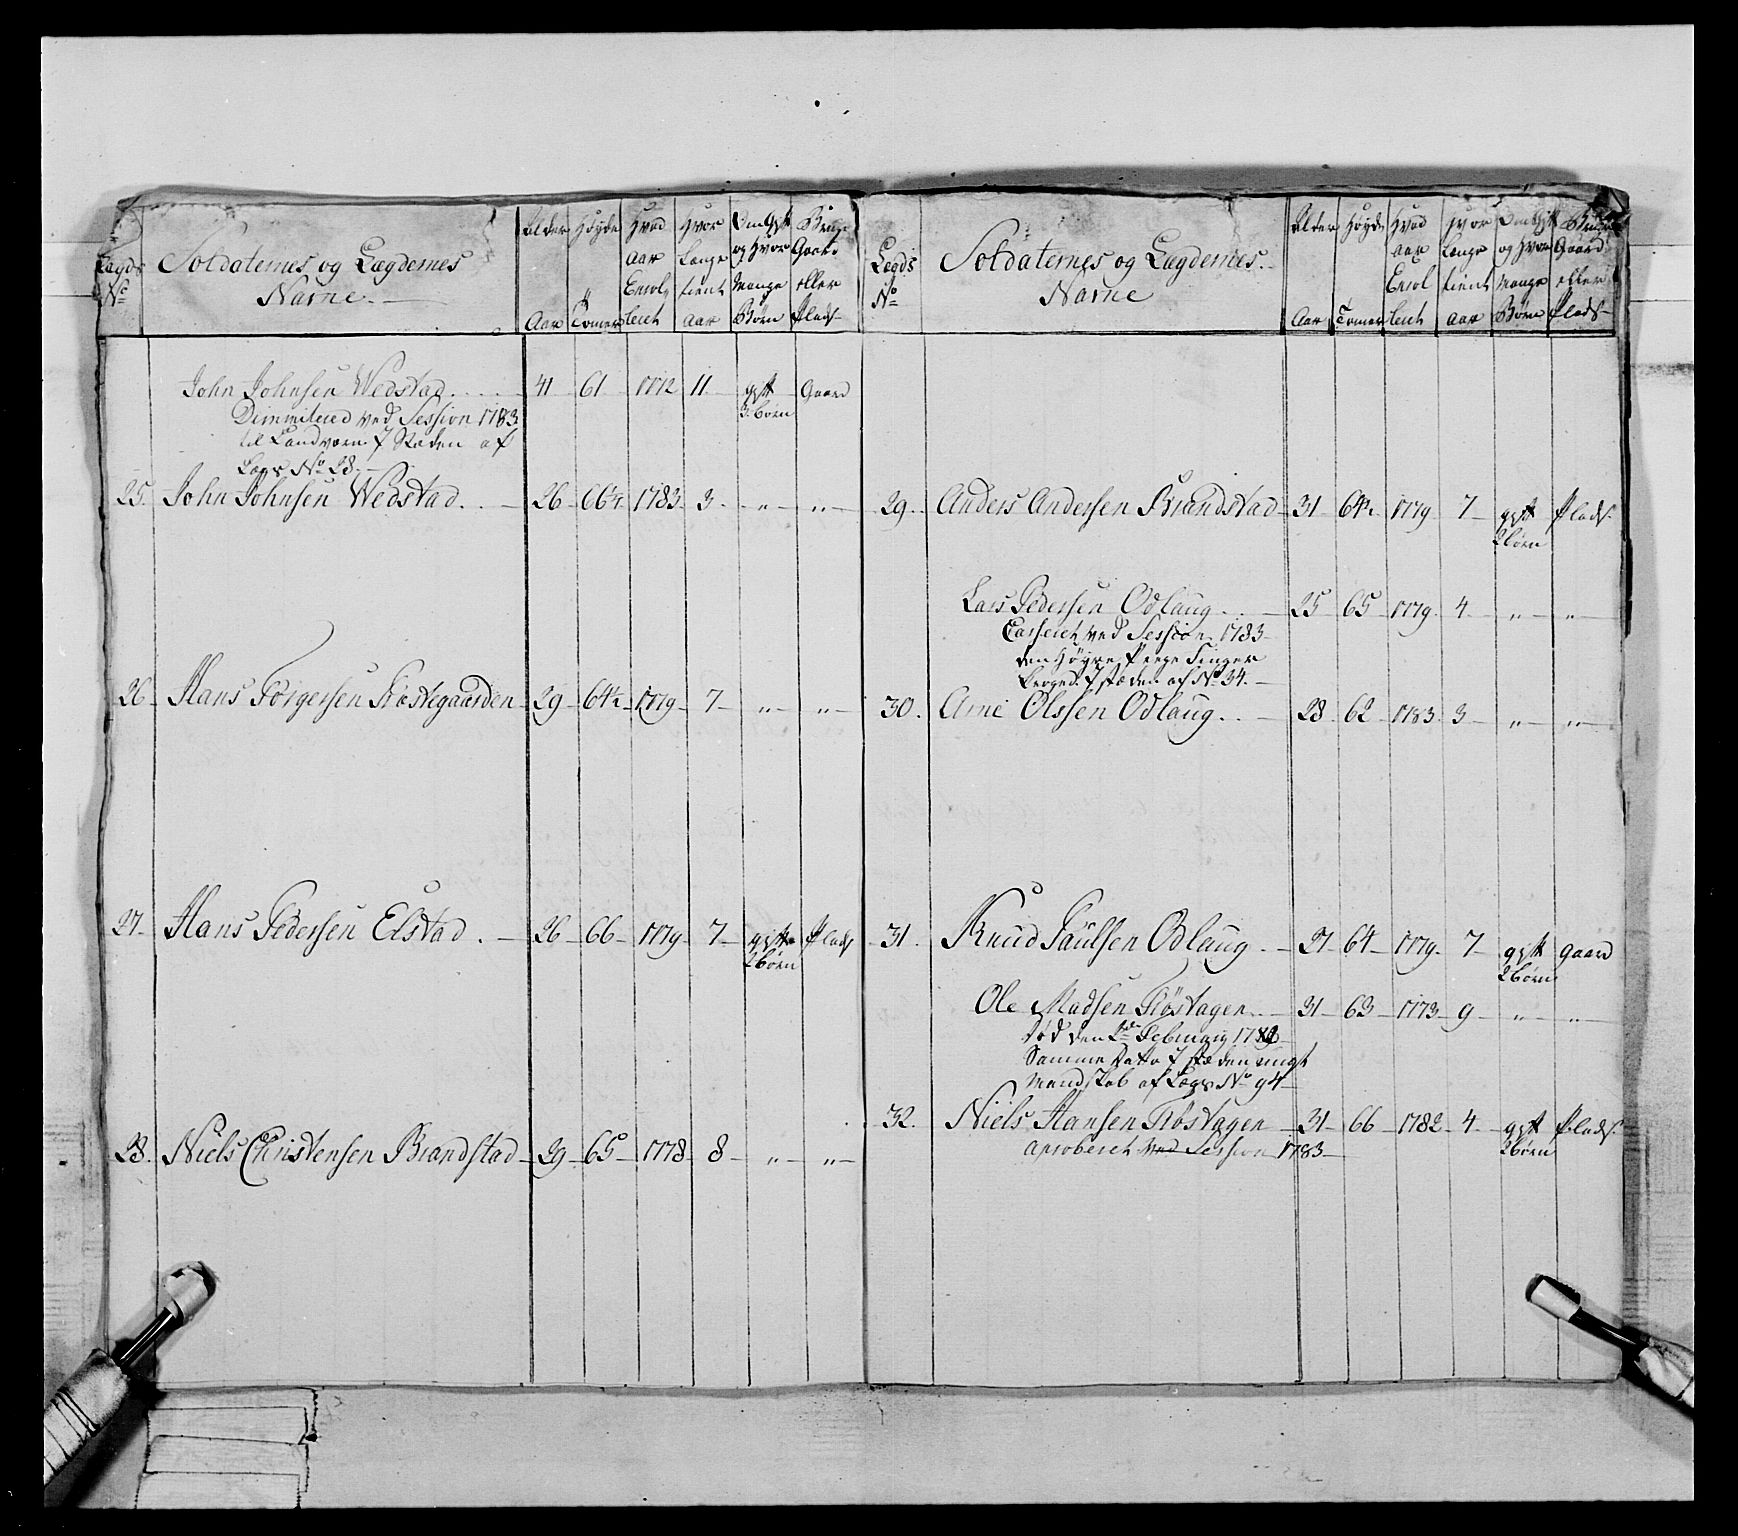 Legds No
Soldaternes og Lægdernes Navne.
Alder Aar
Høyde Tomer
Hvad Aar Enrolleret
Hvor Lange tient aar
Om Gift og Hvor Mange Børn
Gaard eller Plads
John Johnsen Wedstad 41 61 1772 11 gift 3 børn Gaard
Dimmitered ved Session 1783
til Landværn I Stæden af
Legs No 28.
25. John Johnsen Wedstad 26 66¼ 1783 3 " "
26 Hans Torgersen Præstegaarden 29 64½ 1779 7 " "
27 Hans Pedersen Elstad 26 66 1779 7 gift 2 børn Plads
28. Niels Christensen Brandstad 29 65 1778 8 " "
Legds No
Soldaternes og Lægdernes Navne
Alder Aar
Høyde Tomer
Hvad aar Enrolleret
Hvor Lange tient aar
Om Gift og Hvor Mange Børn
Bruger Gaard eller Plads
29. Anders Andersen Brandstad 31 64 1779 7 gift 2 børn Plads
Lars Pedersen Odlaug 25 65 1779 4 " "
Casseret ved Session 1783
den Høyre Finger
I stæden af No 34.
30. Arne Olssen Odlaug 28 62 1783 3 " "
31. Knud Paulsen Odlaug 27 64 1779 7 gift 2 børn Gaard
Ole Madsen Tløstagen 31 63 1773 9 " "
død den Februarij
Samme Dato I stæden ungt
Mandskab af Legs No 94
32. Niels Hansen Tløstagen 31 66 1782 4 gift 2 børn Plads
aproberet ved Session 1783